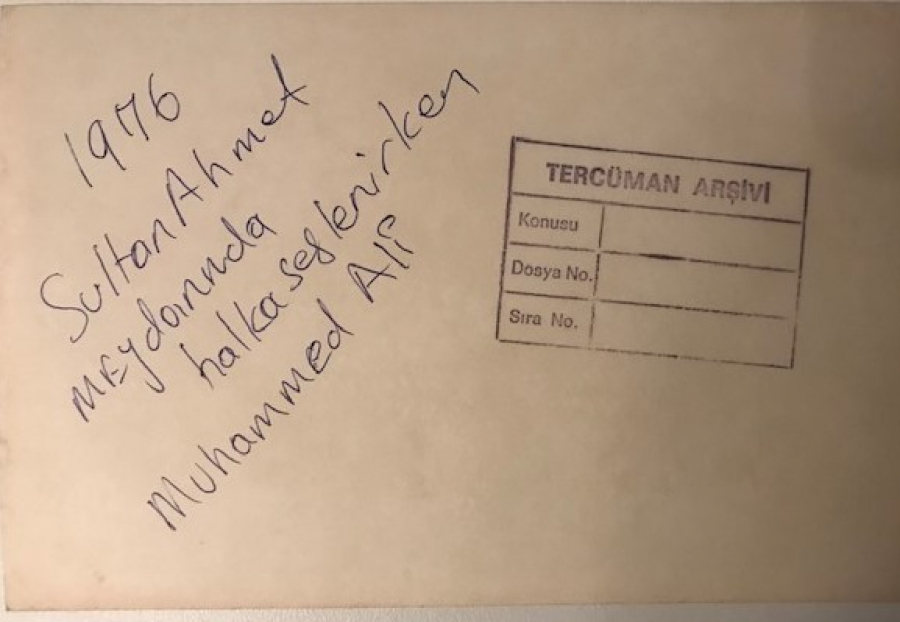 1976
SultanAhmet
meydanında
halka seslenirken
Muhammed Ali
TERCÜMAN ARŞİVİ
Konusu
Dosya No.
Sıra No.